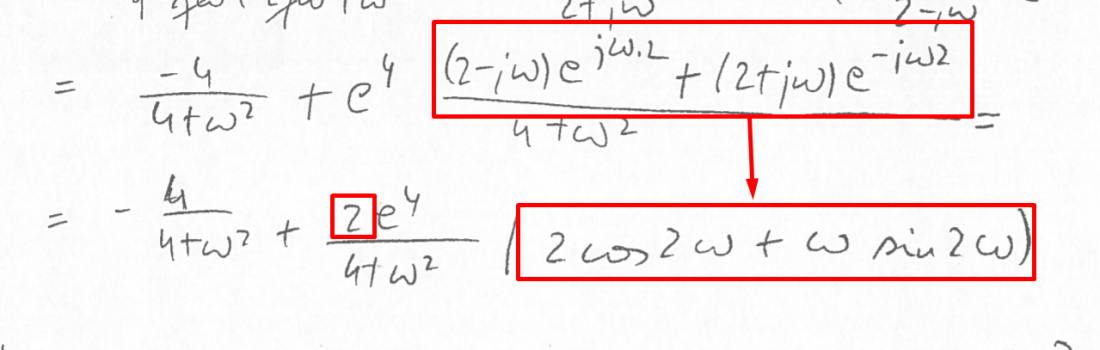 2+jω 2-jω
= -4/(4+ω²) + e⁴ ((2-jω)e^(jω.2) + (2+jω)e^(-jω2))/(4+ω²) =
= - 4/(4+ω²) + 2e⁴/(4+ω²) (2cos2ω + ω sin2ω)